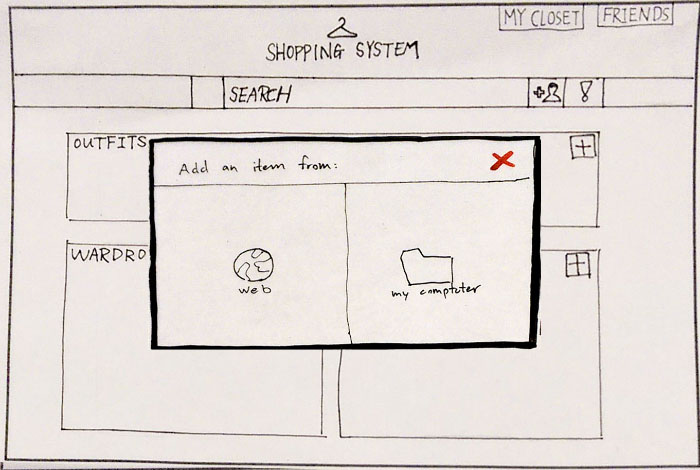 MY CLOSET
FRIENDS
SHOPPING SYSTEM
SEARCH
OUTFITS
Add an item from:
WARDRO
web
my comptuter